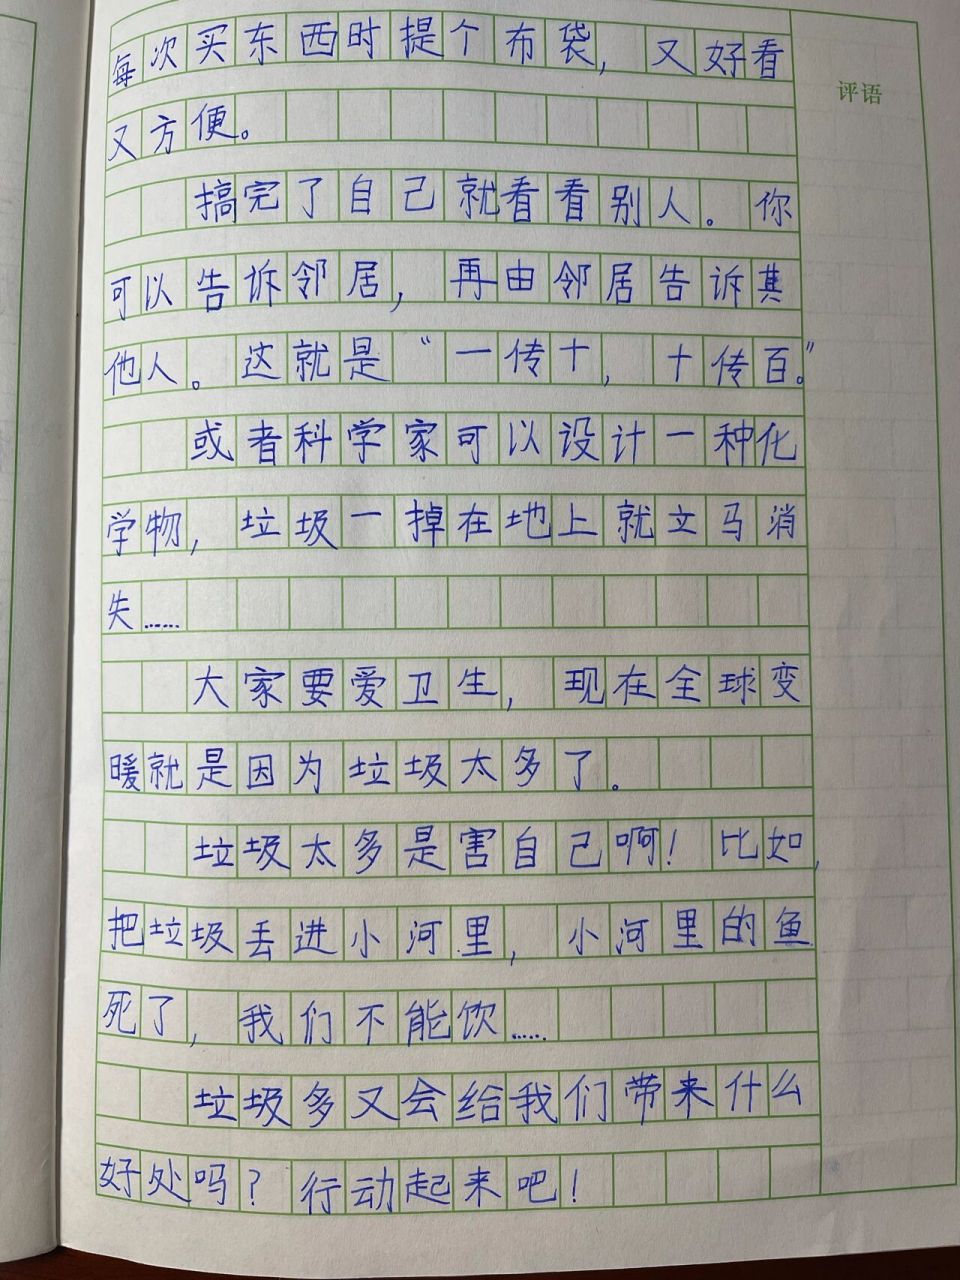 每次买东西时提个布袋，又好看
评语
又方便。
搞完了自己就看看别人。你
可以告诉邻居，再由邻居告诉其
他人。这就是“一传十，十传百。”
或者科学家可以设计一种化
学物，垃圾一掉在地上就立马消
失……
大家要爱卫生，现在全球变
暖就是因为垃圾太多了。
垃圾太多是害自己啊！比如，
把垃圾丢进小河里，小河里的鱼
死了，我们不能饮……
垃圾多又会给我们带来什么
好处吗？行动起来吧！